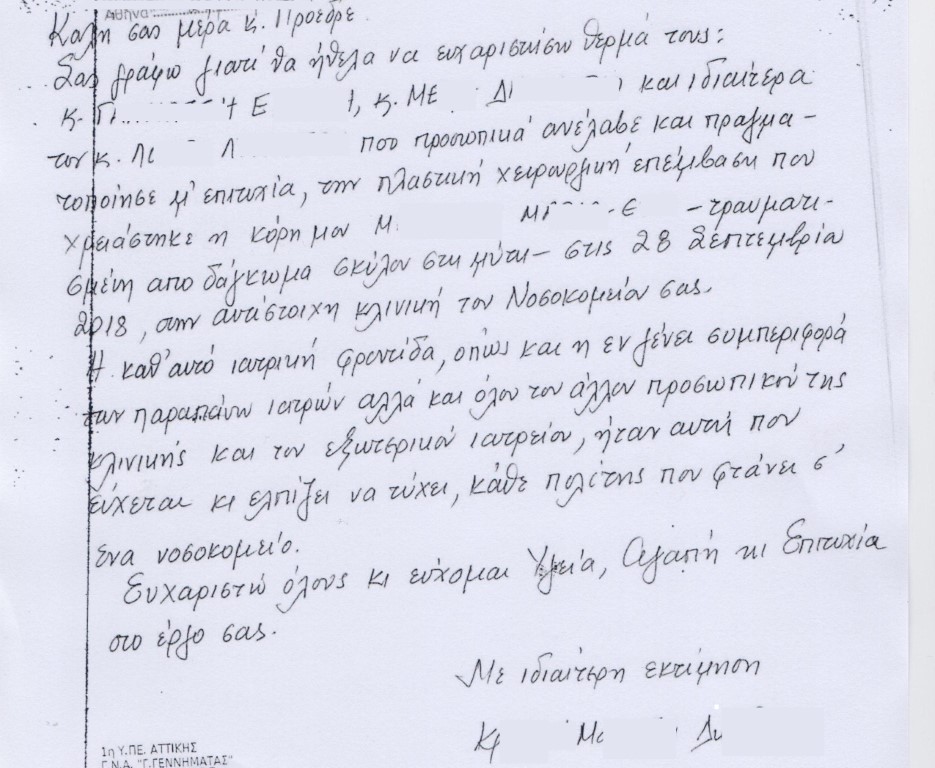 Αθήνα
Καλή σας μέρα κ. Πρόεδρε
Σας γράφω γιατί θα ήθελα να ευχαριστήσω θερμά τους:
κ. και ιδιαίτερα
τον κ. που προσωπικά ανέλαβε και πραγμα-
τοποίησε μ' επιτυχία, την πλαστική χειρουργική επέμβαση που
χρειάστηκε η κόρη μου Μ. -τραυματι-
σμένη απο δάγκωμα σκύλου στη μύτη- στις 28 Σεπτεμβρίου
2018, στην αντίστοιχη κλινική του Νοσοκομείου σας.
Η καθ' αυτό ιατρική φροντίδα, όπως και η εν γένει συμπεριφορά
των παραπάνω ιατρών αλλά και όλου του άλλου προσωπικού της
κλινικής και του εξωτερικού ιατρείου, ήταν αυτή που
εύχεται κι ελπίζει να τύχει, κάθε πολίτης που φτάνει σ'
ένα νοσοκομείο.
Ευχαριστώ όλους κι εύχομαι Υγεία, Αγάπη κι Επιτυχία
στο έργο σας.
Με ιδιαίτερη εκτίμηση
1η Υ.ΠΕ. ΑΤΤΙΚΗΣ
Γ.Ν.Α. "Γ.ΓΕΝΝΗΜΑΤΑΣ"